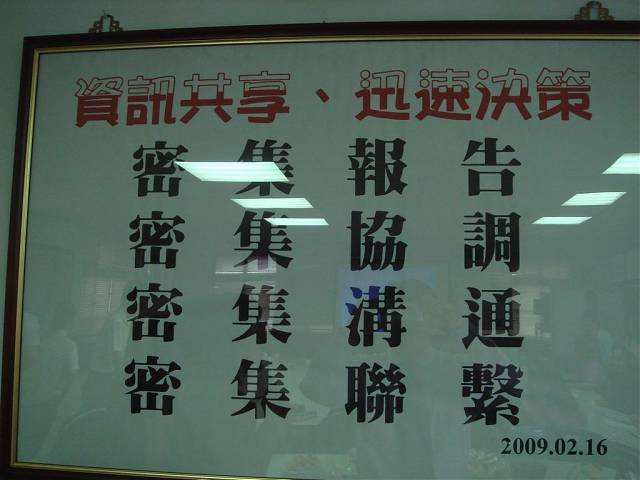 資訊共享、迅速決策
密集報告
密集協調
密集溝通
密集聯繫
2009.02.16